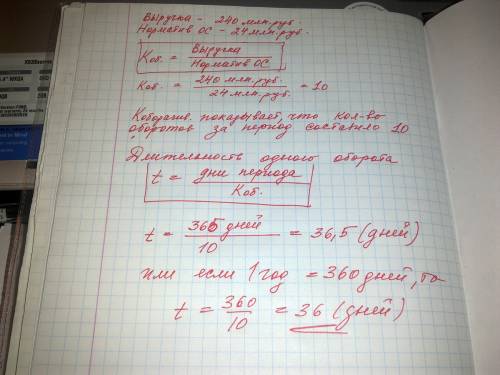 Выручка - 240 млн.руб.
Норматив ОС - 24 млн.руб.
Коб. = Выручка / Норматив ОС
Коб. = 240 млн.руб. / 24 млн.руб. = 10
показывает, что кол-во
оборотов за период составило 10
Длительность одного оборота
t = дни периода / Коб.
t = 365 дней / 10 = 36,5 (дней)
или если 1 год = 360 дней, то
t = 360 / 10 = 36 (дней)